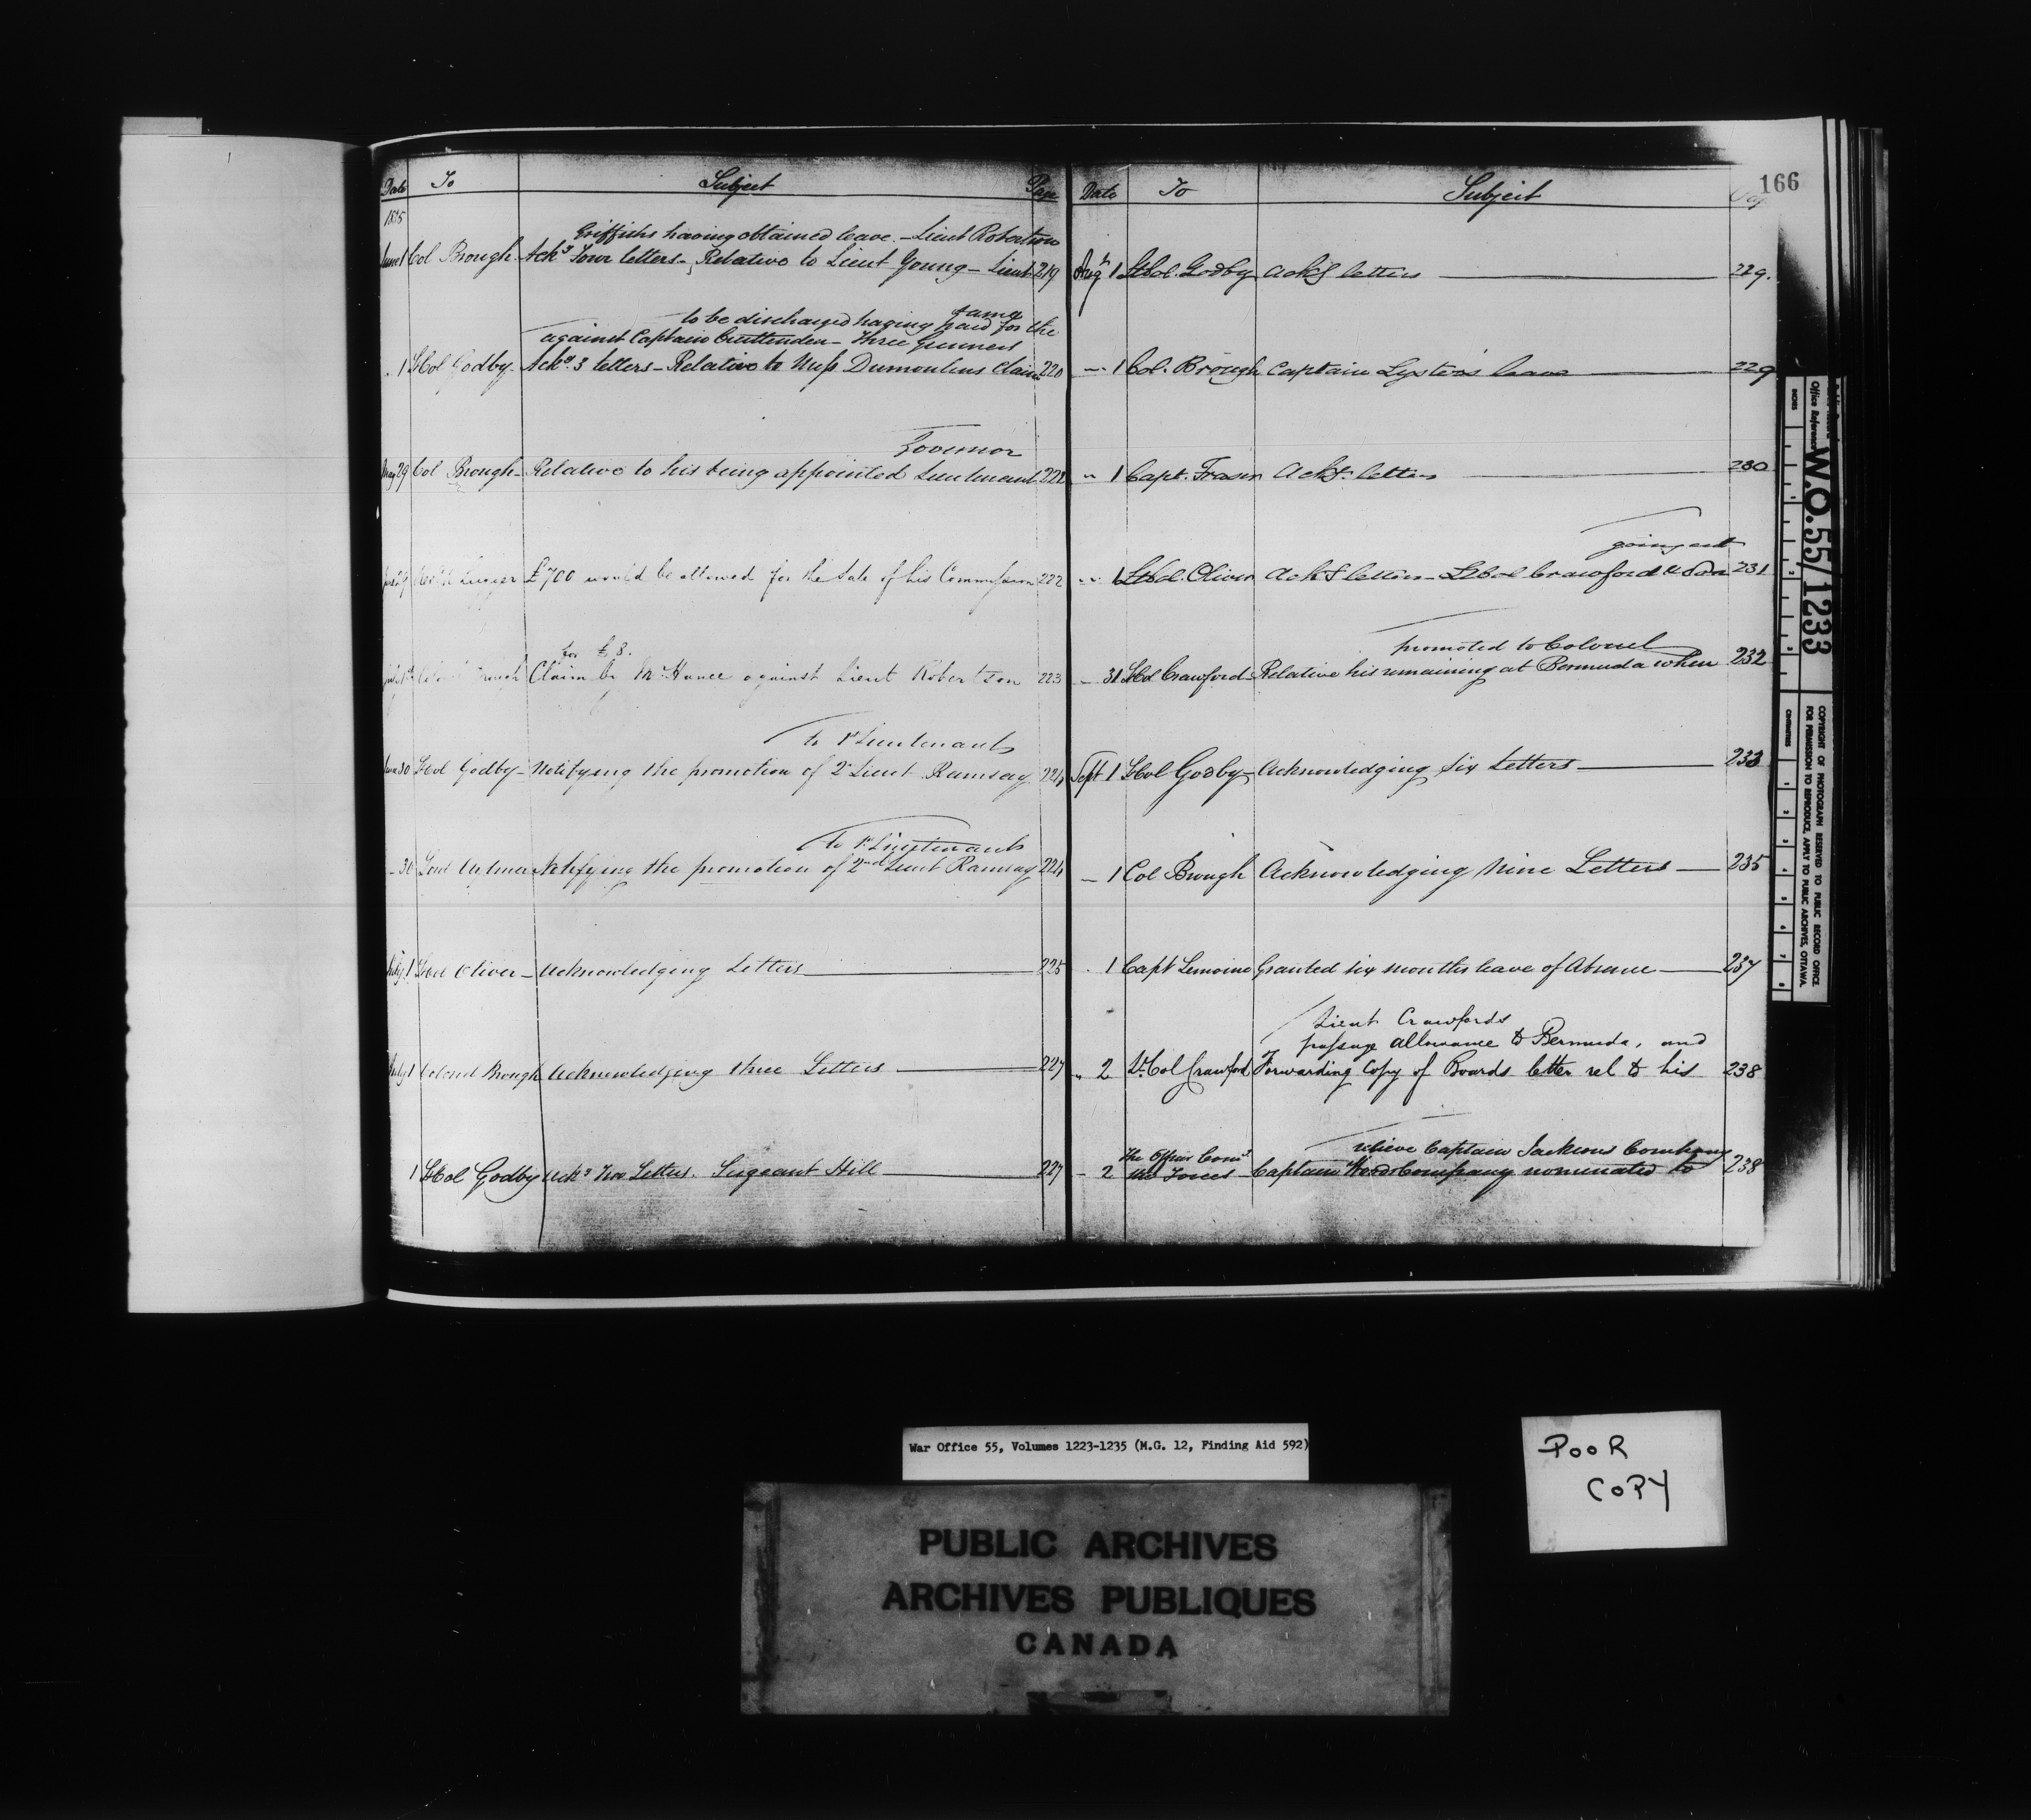 166
Date To Subject Page
1835
Griffiths having obtained leave. – Lieut Robertson
June 1 Col Brough – Ackg Four letters – Relative to Lieut Young – Lieut 219
same
to be discharged having paid for the
against Captain Cruttenden – Three Gunners
1 LtCol Godby – Ackg 3 letters – Relative to Miss Dumoulins Claim 220
Governor
May 29 Col Brough – Relative to his being appointed Lieutenant 222
29 £700 would be allowed for the Sale of his Commission 222
for £8.
Claim by Mr Hance against Lieut Robertson 223
to 1st Lieutenants
June 30 LtCol Godby – Notifying the promotion of 2d Lieut Ramsay 224
to 1st Lieutenants
– 30 Lord Aylmer Notifying the promotion of 2nd Lieut Ramsay 224
July 1 LtCol Oliver – Acknowledging Letters 225
July 1 Colonel Brough Acknowledging three Letters 227
1 LtCol Godby Ackg Two Letters. Sergeant Hill 227
Date To Subject
Augt 1 LtCol. Godby Ackg letters 229.
" 1 Col. Brough Captain Lyster's leave 229
" 1 Capt. Fraser Ackg letters 230
going out
" 1 LtCol. Oliver Ackg letters – LtCol Crawford & Son 231
promoted to Colonel
– 31 LtCol Crawford – Relative his remaining at Bermuda when 232
Sept 1 LtCol Godby – Acknowledging Six Letters 233
– 1 Col Brough Acknowledging Nine Letters 235
1 Capt Lemoine Granted six months leave of Absence 237
Lieut Crawfords
passage allowance to Bermuda, and
" 2 Lt Col Crawford Forwarding Copy of Boards letter rel to his 238
relieve Captain Jacksons Company
The Officer Comg
– 2 the Forces – Captain Company nominated to 238
Office Reference W.O.55/1233
INCHES
CENTIMETRES
COPYRIGHT OF PHOTOGRAPH RESERVED TO PUBLIC RECORD OFFICE
FOR PERMISSION TO REPRODUCE, APPLY TO PUBLIC ARCHIVES, OTTAWA.
War Office 55, Volumes 1223-1235 (M.G. 12, Finding Aid 592)
POOR
COPY
PUBLIC ARCHIVES
ARCHIVES PUBLIQUES
CANADA